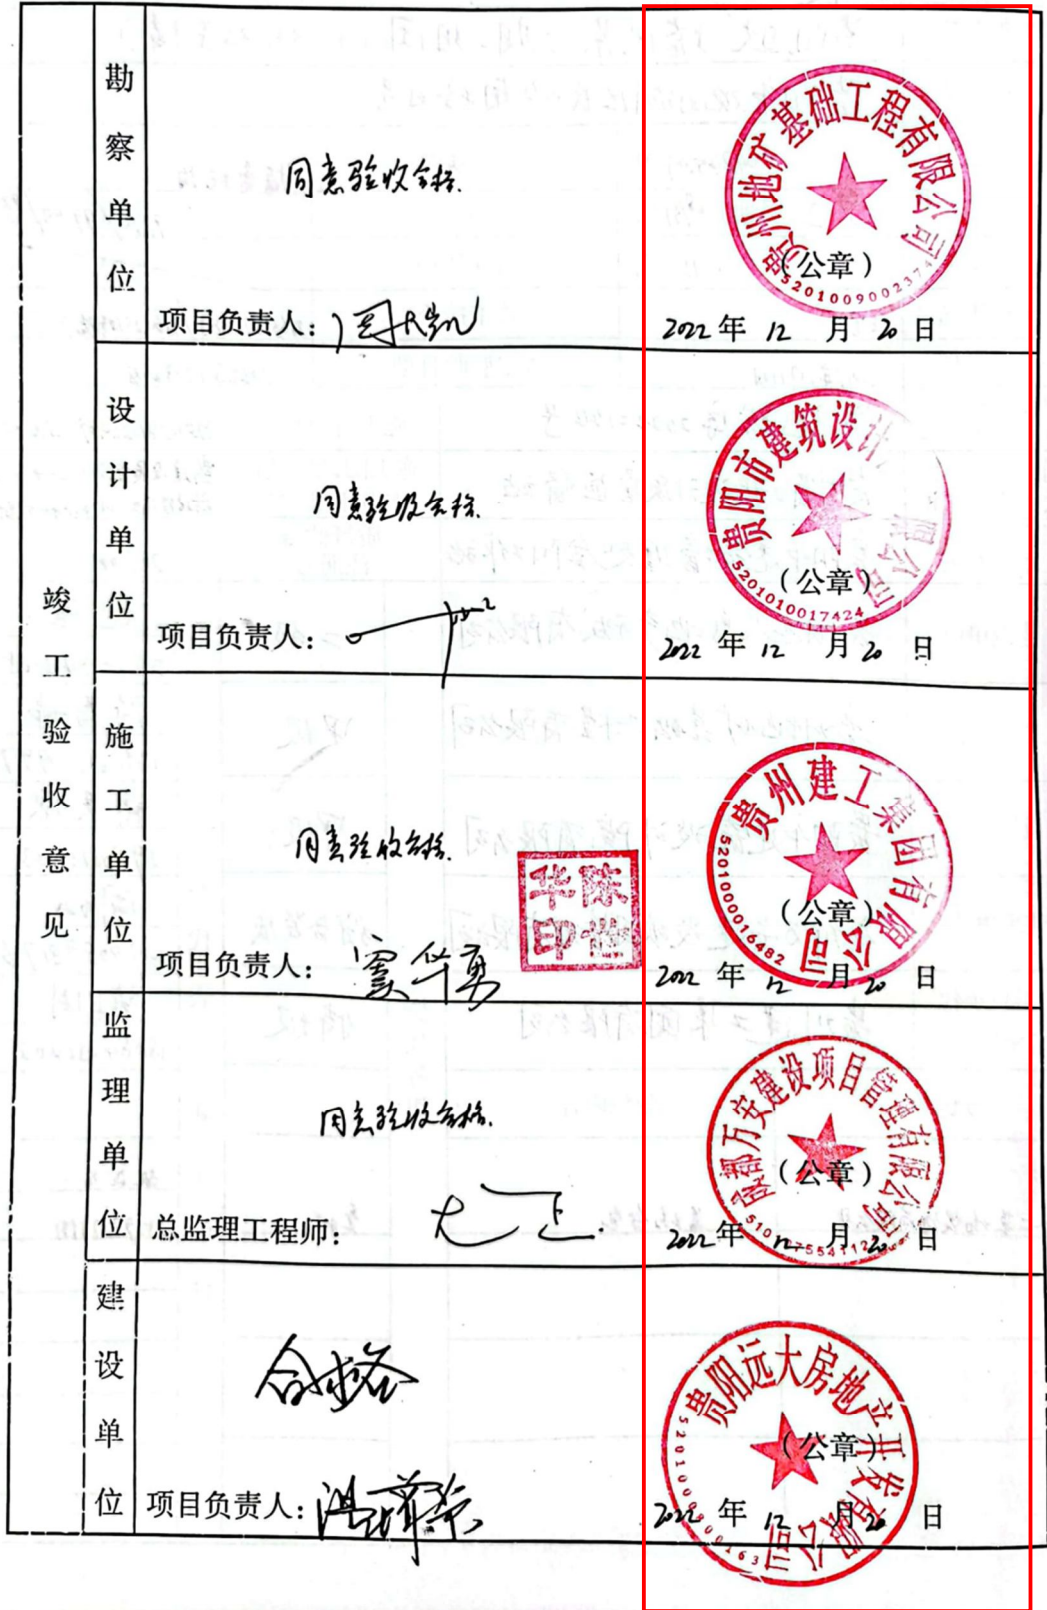 竣工验收意见
勘察单位
同意验收合格.
项目负责人:
贵州地矿基础工程有限公司
(公章)
5201009002374
2022 年 12 月 20 日
设计单位
同意验收合格.
项目负责人:
贵阳市建筑设计 限公司
(公章)
5201010017424
2022 年 12 月 20 日
施工单位
同意验收合格.
陈世华印
项目负责人: 窦华勇
贵州建工集团有限公司
(公章)
5201000016482
2022 年 12 月 20 日
监理单位
同意验收合格.
总监理工程师:
成都万安建设项目管理有限公司
(公章)
2022 年 12 月 20 日
建设单位
合格
项目负责人:
贵阳远大房地产开发有限公司
(公章)
2022 年 12 月 20 日